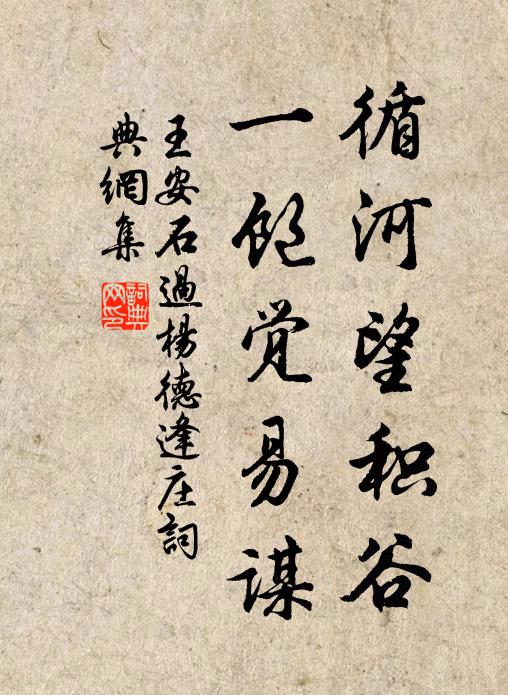 循河望积谷
一饱觉易谋
王安石過楊德逢庄詞
典網集
詞典
网印